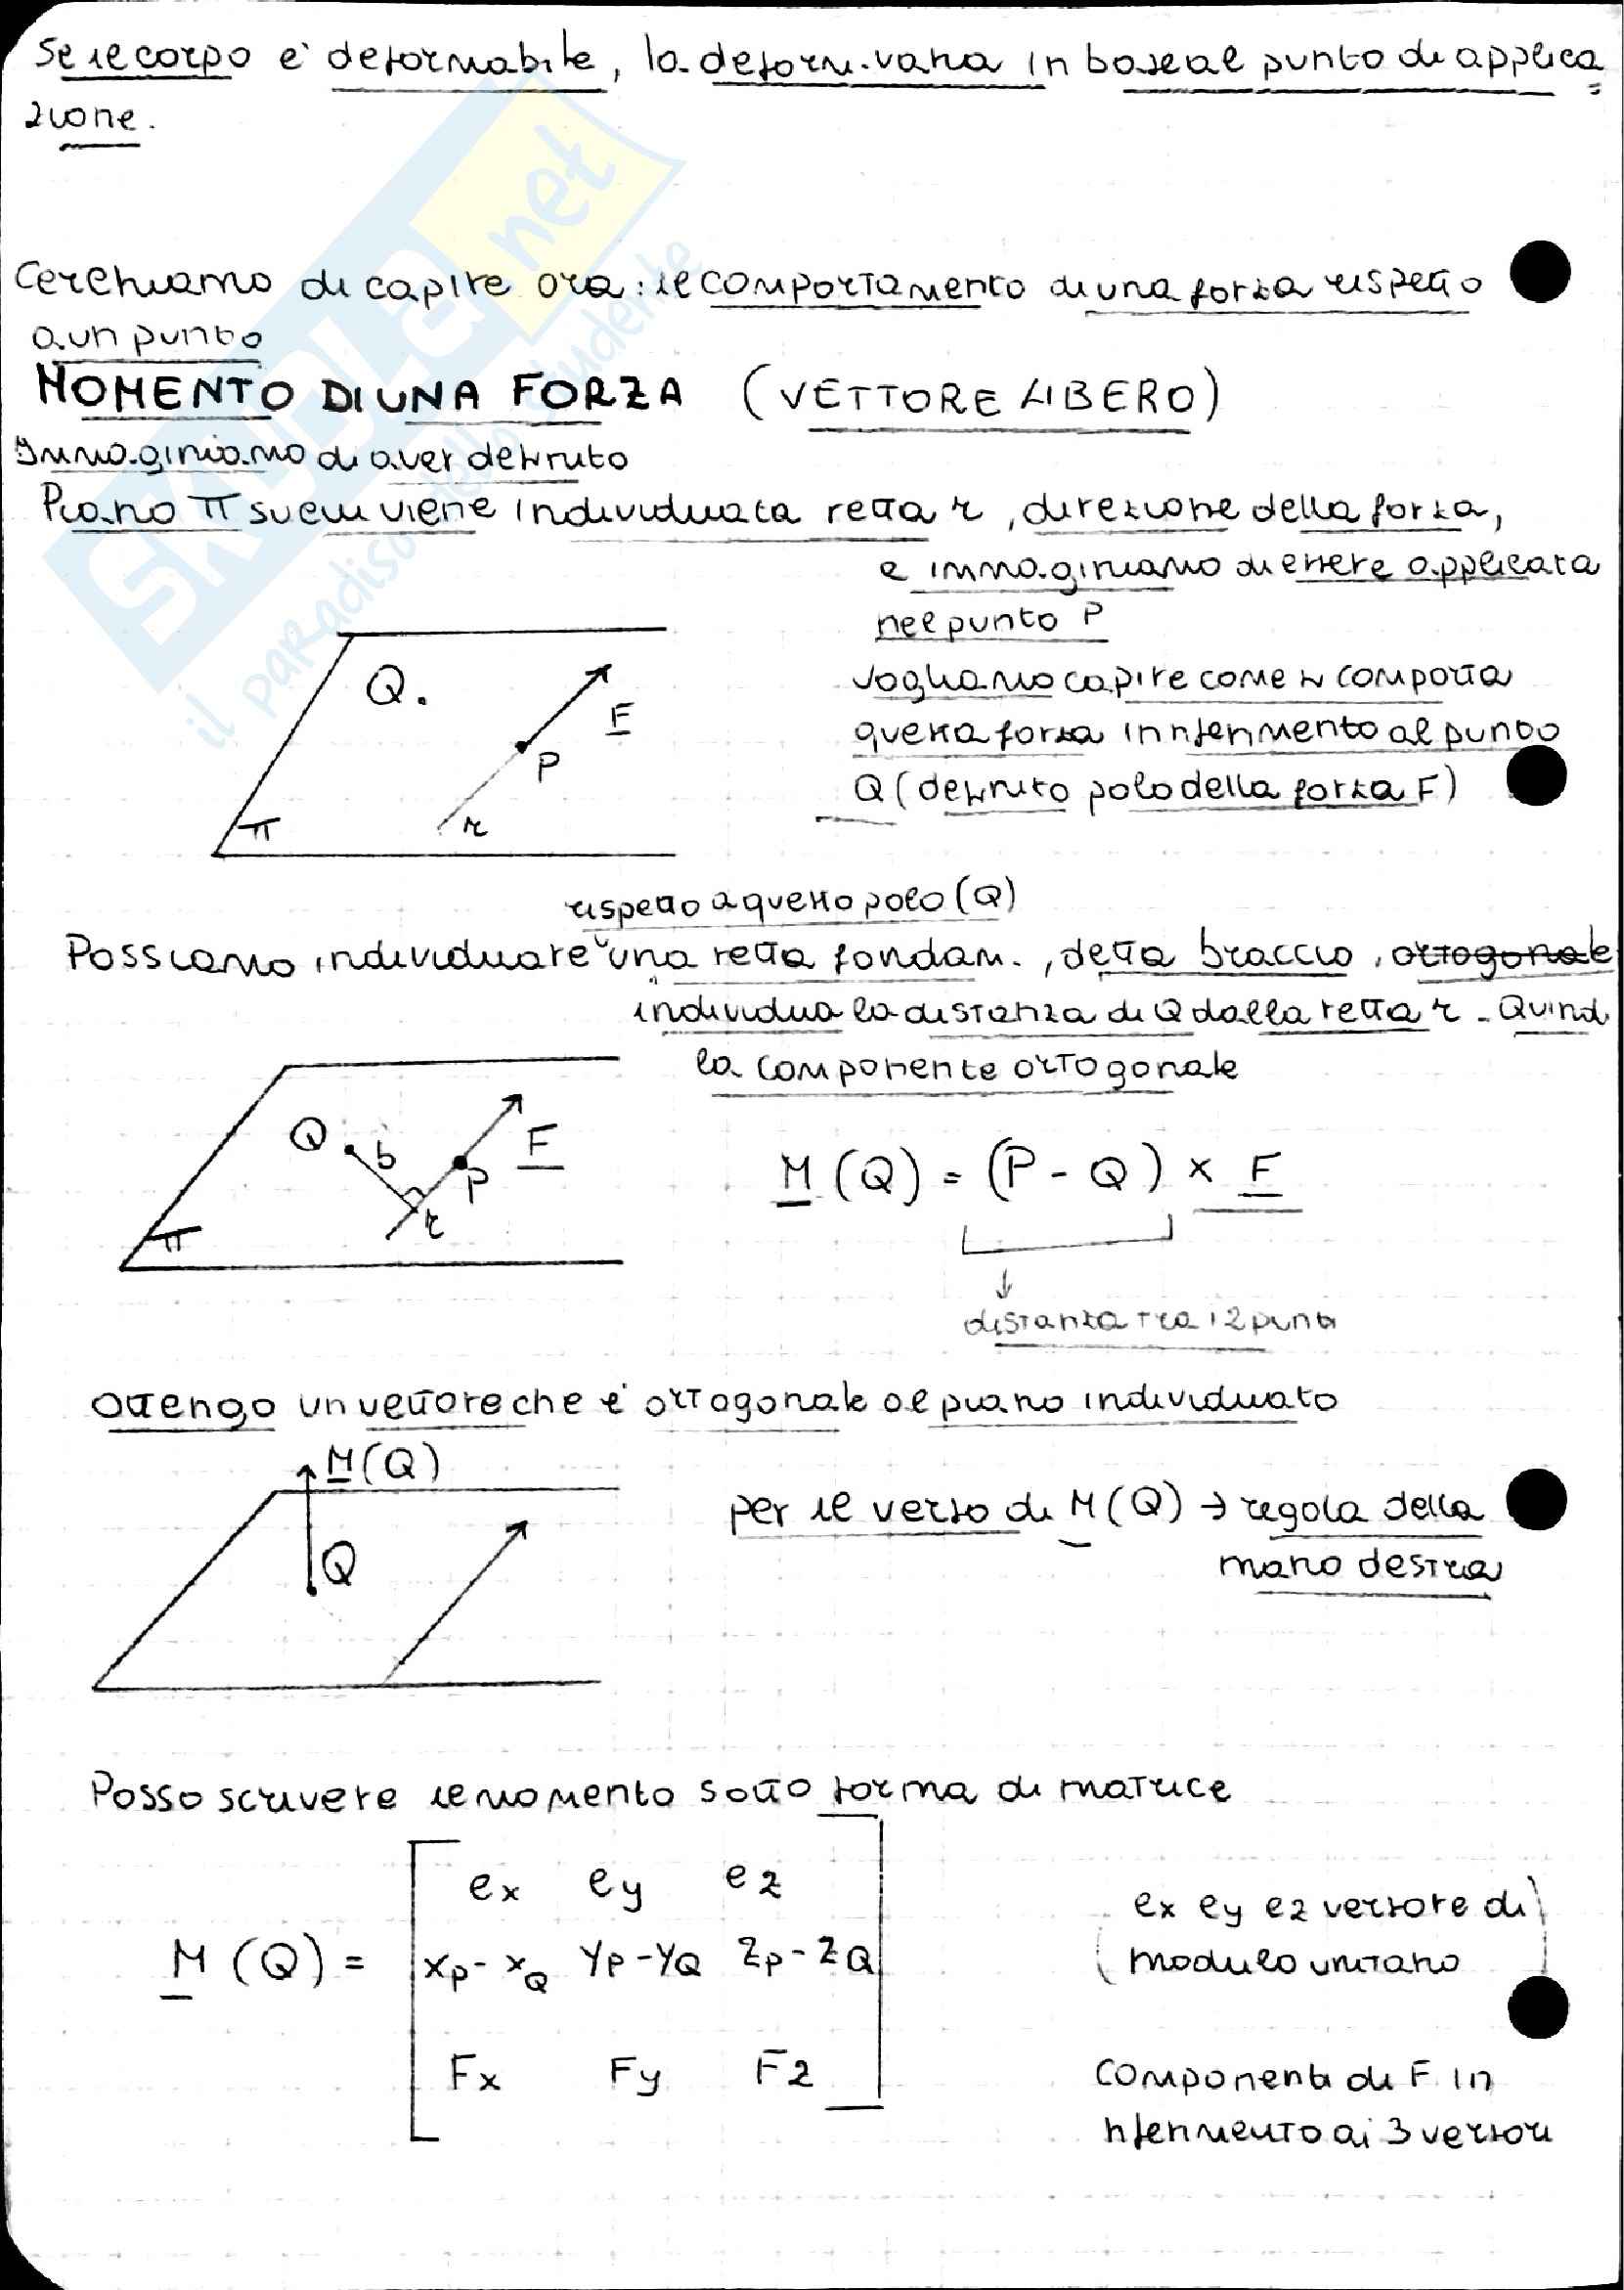 Se il corpo è deformabile, la deform. varia in base al punto di applica=
zione.
Cerchiamo di capire ora: il comportamento di una forza rispetto
a un punto
MOMENTO DI UNA FORZA (VETTORE LIBERO)
Immaginiamo di aver definito
Piano π su cui viene individuata retta r, direzione della forza,
e immaginiamo di essere applicata
nel punto P
Q.
F
P
r
π
Vogliamo capire come si comporta
questa forza in riferimento al punto
Q (definito polo della forza F)
rispetto a questo polo (Q)
Possiamo individuare una retta fondam., detta braccio, ortogonale
individua la distanza di Q dalla retta r. Quindi
la componente ortogonale
Q b F
P
r
π
M (Q) = (P - Q) × F
↓
distanza tra i 2 punti
Ottengo un vettore che è ortogonale al piano individuato
M (Q)
Q
per il verso di M (Q) → regola della
mano destra
Posso scrivere il momento sotto forma di matrice
ex ey ez
M (Q) = xP - xQ yP - yQ zP - zQ
Fx Fy Fz
ex ey ez versore di
modulo unitario
componenti di F in
riferimento ai 3 versori
SKUOLA.net
il paradiso dello studente